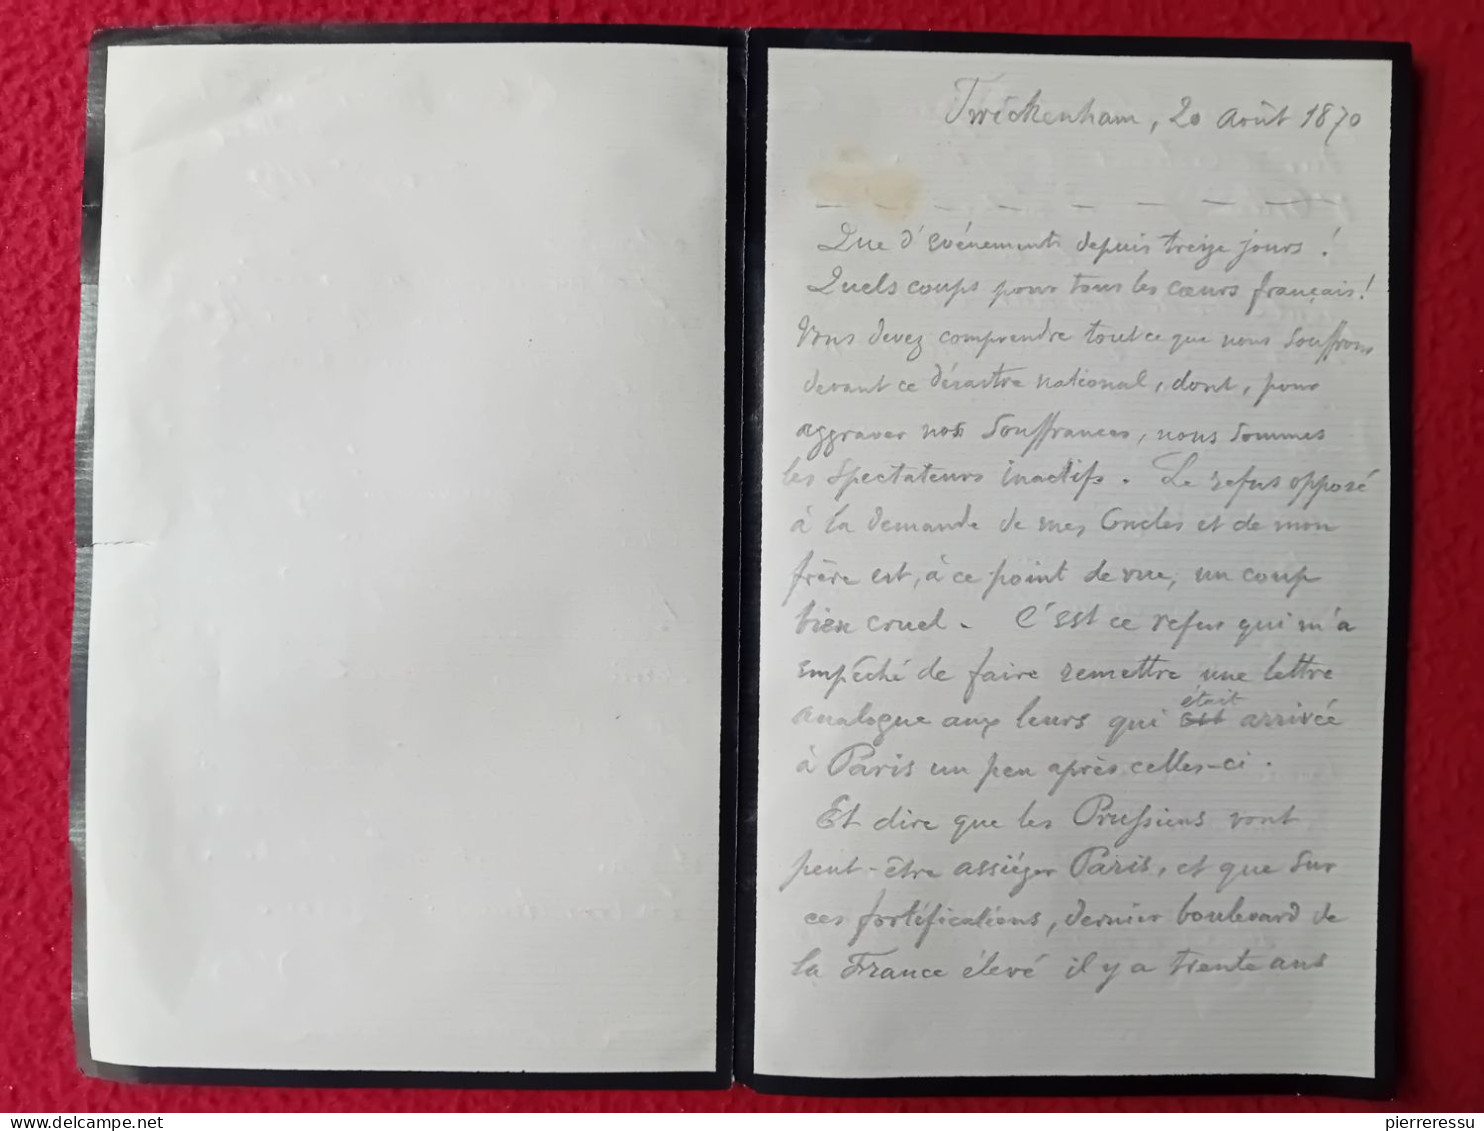 Twickenham, 20 Août 1870
— — — — — — — — —
Que d'événements depuis treize jours !
Quels coups pour tous les cœurs français !
Vous devez comprendre tout ce que nous souffrons
devant ce désastre national, dont, pour
aggraver nos souffrances, nous sommes
les spectateurs inactifs. Le refus opposé
à la demande de mes Oncles et de mon
frère est, à ce point de vue, un coup
bien cruel. C'est ce refus qui m'a
empêché de faire remettre une lettre
analogue aux leurs qui était arrivée
à Paris un peu après celles-ci.
Et dire que les Prussiens vont
peut-être assiéger Paris, et que sur
ces fortifications, dernier boulevard de
la France élevé il y a trente ans
pierreressu